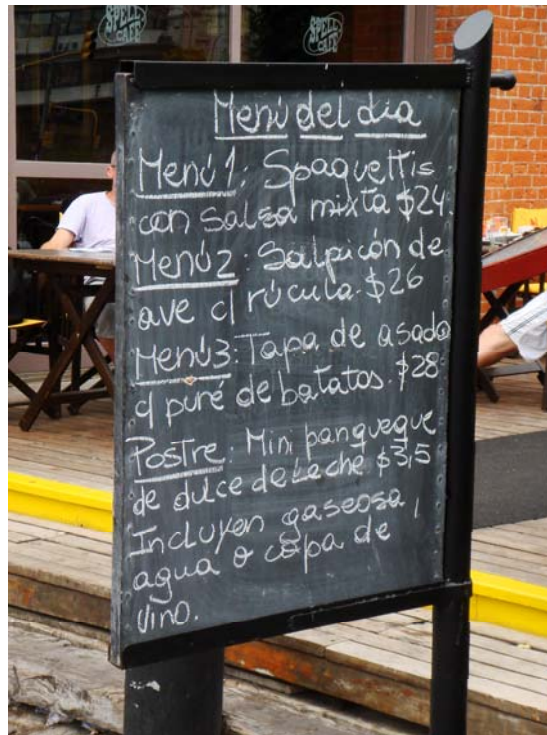 SPELL
CAFE
SPELL
CAFE
Menú del dia
Menú 1: Spaguettis
con salsa mixta $24.
Menú 2: Salpicón de
ave c/ rúcula. $26
Menú 3: Tapa de asado
c/ puré de batatas. $28
Postre: Mini panqueque
de dulce de leche $3,5
Incluyen gaseosa,
agua o copa de
vino.